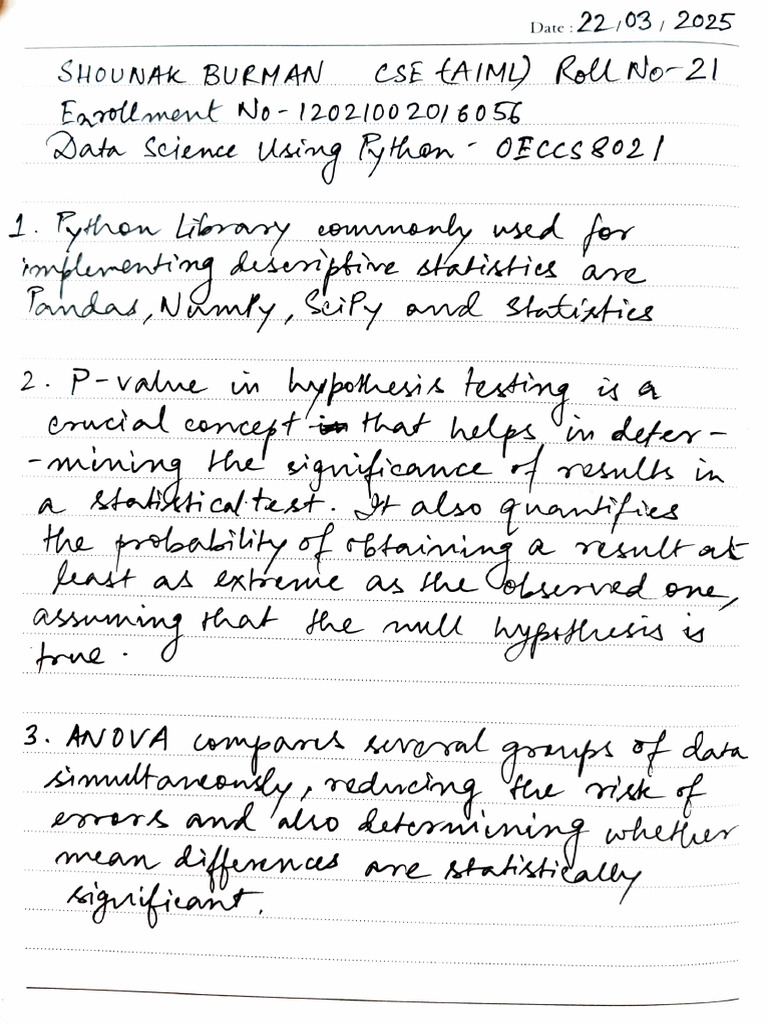 Date : 22/03/2025
SHOUNAK BURMAN CSE (AIML) Roll No-21
Enrollment No-12021002016056
Data Science Using Python - OECCS8021
1. Python Library commonly used for
implementing descriptive statistics are
Pandas, NumPy, SciPy and Statistics
2. P-value in hypothesis testing is a
crucial concept that helps in deter-
-mining the significance of results in
a statistical test. It also quantifies
the probability of obtaining a result at
least as extreme as the observed one,
assuming that the null hypothesis is
true.
3. ANOVA compares several groups of data
simultaneously, reducing the risk of
errors and also determining whether
mean differences are statistically
significant.